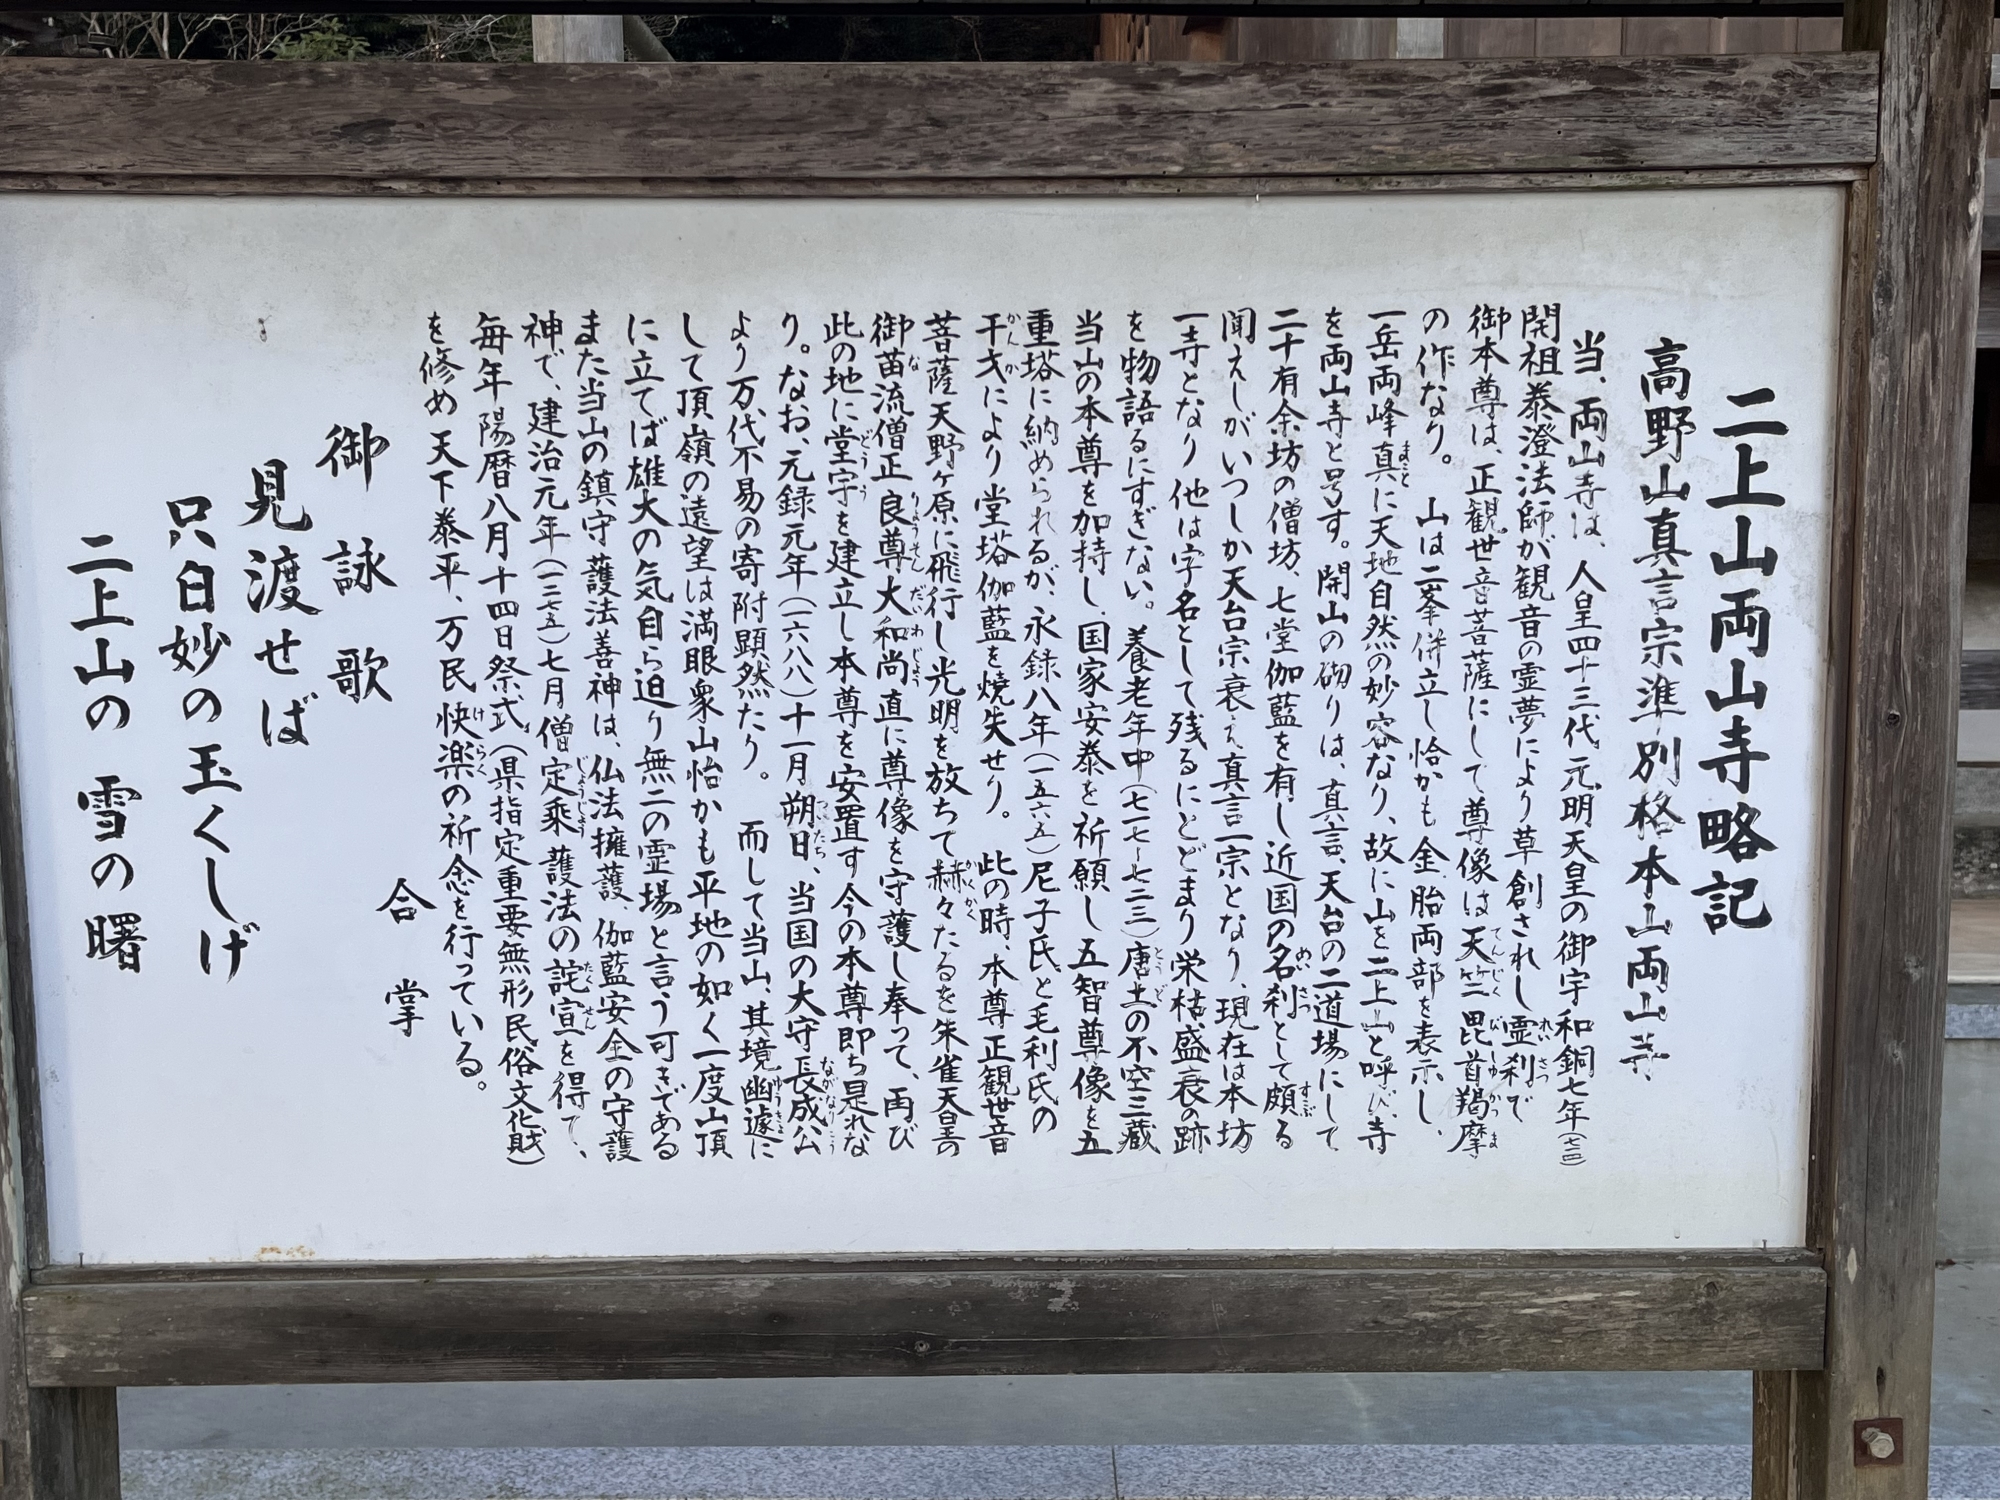 二上山両山寺略記
高野山真言宗準別格本山両山寺
当、両山寺は、人皇四十三代元明天皇の御宇和銅七年(七一四)
開祖泰澄法師が観音の霊夢により草創されし霊刹で
御本尊は、正観世音菩薩にして尊像は天竺毘首羯摩
の作なり。 山は二峯併立し恰かも金、胎両部を表示し、
一岳両峰真に天地自然の妙容なり、故に山を二上山と呼び、寺
を両山寺と号す。開山の砌りは、真言、天台の二道場にして
二十有余坊の僧坊、七堂伽藍を有し近国の名刹として頗る
聞えしがいつしか天台宗衰え真言一宗となり、現在は本坊
一寺となり他は字名として残るにとどまり栄枯盛衰の跡
を物語るにすぎない。養老年中(七一七~七二三)唐土の不空三蔵
当山の本尊を加持し、国家安泰を祈願し五智尊像を五
重塔に納められるが、永録八年(一五六五)尼子氏と毛利氏の
干戈により堂塔伽藍を焼失せり。 此の時、本尊正観世音
菩薩天野ヶ原に飛行し光明を放ちて赫々たるを朱雀天皇の
御苗流僧正良尊大和尚直に尊像を守護し奉って、再び
此の地に堂宇を建立し本尊を安置す今の本尊即ち是れな
り。なお、元録元年(一六八八)十一月朔日、当国の大守長成公
より万代不易の寄附顕然たり。 而して当山、其境幽邃に
して頂嶺の遠望は満眼衆山恰かも平地の如く一度山頂
に立てば雄大の気自ら迫り無二の霊場と言う可きである
また当山の鎮守護法善神は、仏法擁護、伽藍安全の守護
神で、建治元年(一二七五)七月僧定乗護法の詫宣を得て、
毎年陽暦八月十四日祭式(県指定重要無形民俗文化財)
を修め天下泰平、万民快楽の祈念を行っている。
合掌
御詠歌
見渡せば
只白妙の玉くしげ
二上山の雪の曙